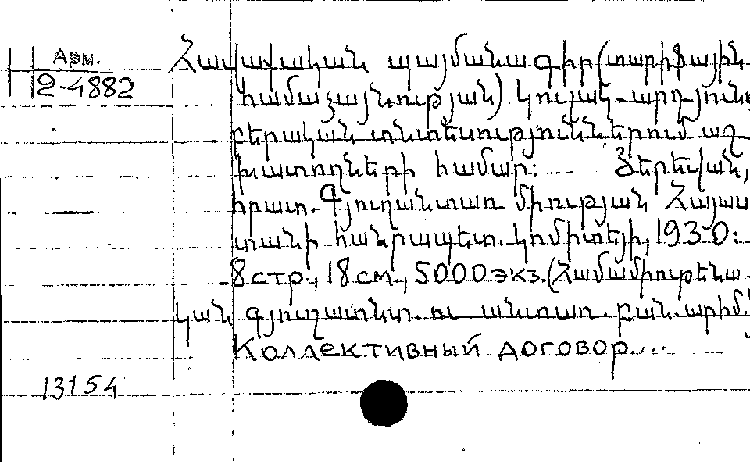 Арм.
2-4882
Հավաքական պայմանագիր (տարիֆային
համաձայնության) կուլակ-արդյունա
բերական տնտեսություններում աշ
խատողների համար: Յերեվան,
հրատ. Գյուղանտառ միության Հայաս
տանի հանրապետ. կոմիտեյի, 1930:
8 стр., 18 см., 5000 экз. (Համամիութենա
կան գյուղատնտ. ու անտառ բան. արհմ.
Коллективный договор....
13154